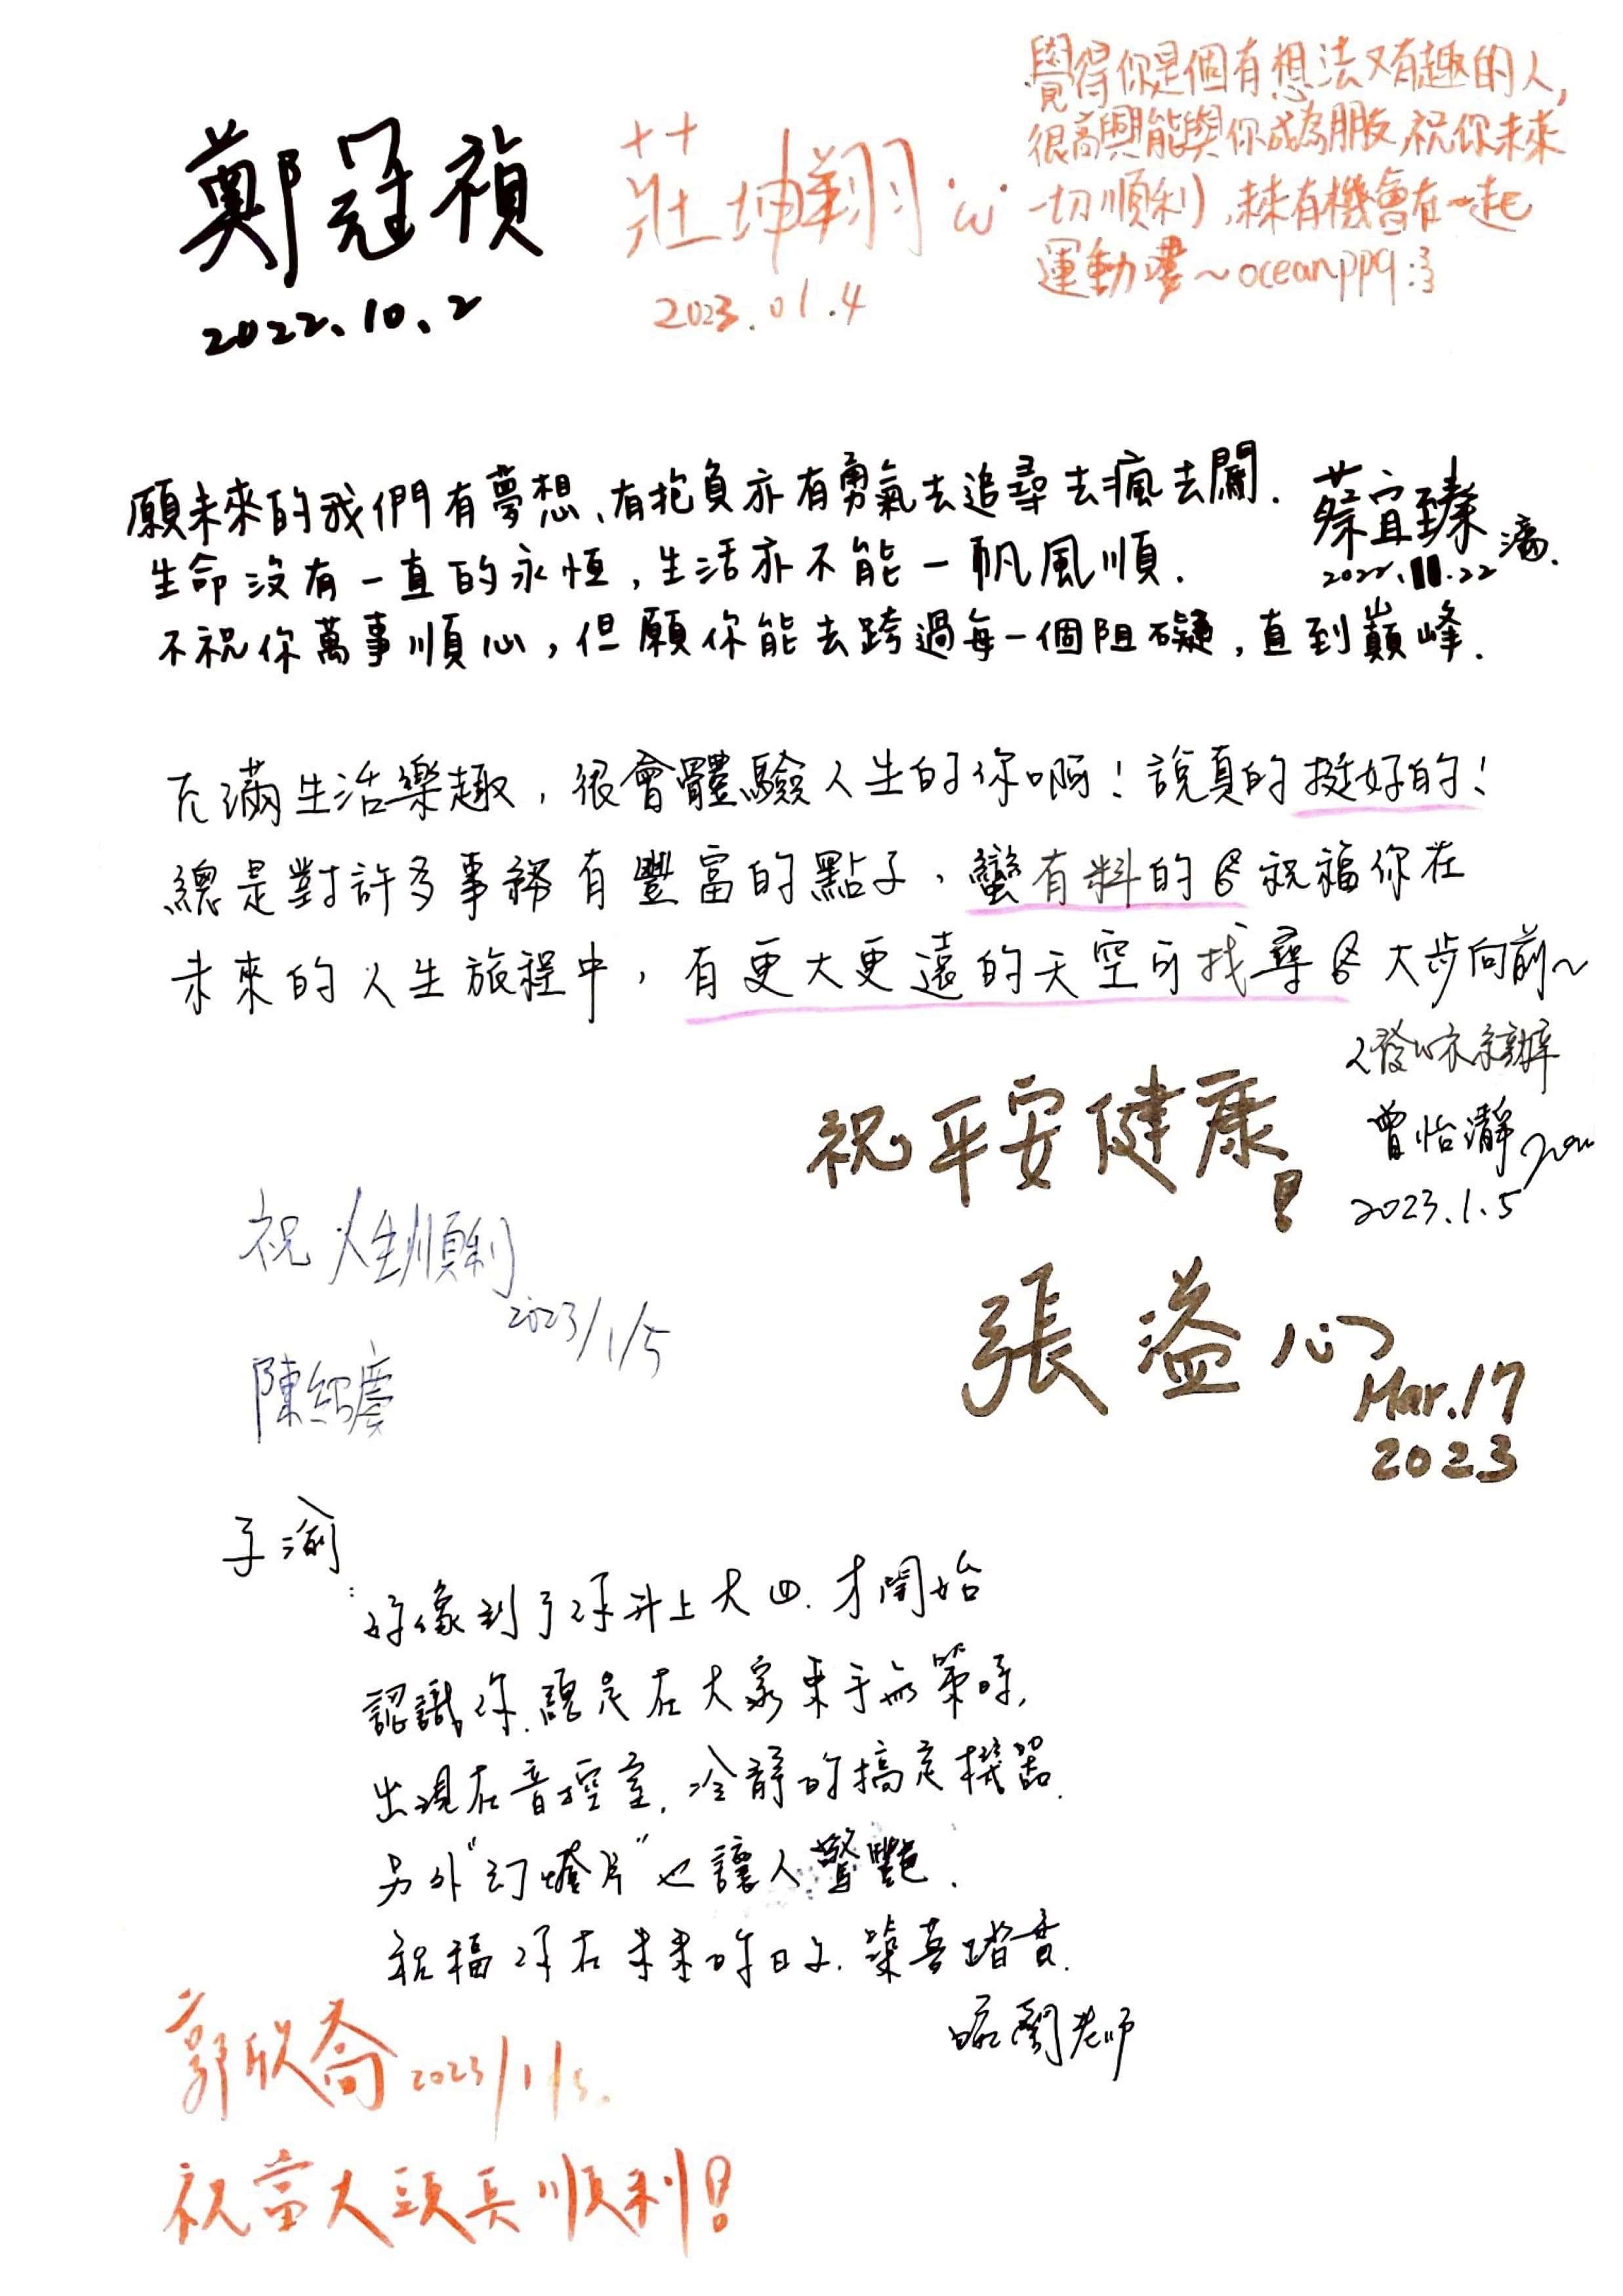 鄭冠禎
2022.10.2
莊坤翔
2023.01.4
覺得你是個有想法又有趣的人,
很高興能與你成為朋友,祝你未來
一切順利,未來有機會在一起
運動 ~oceanppq:3
願未來的我們有夢想、有抱負亦有勇氣去追尋去瘋去闖.
生命沒有一直的永恆,生活亦不能一帆風順.
不祝你萬事順心,但願你能去跨過每一個阻礙,直到巔峰.
蔡宜臻
2022.11.22
充滿生活樂趣,很會體驗人生的你啊!說真的挺好的!
總是對許多事務有豐富的點子,蠻有料的 祝福你在
未來的人生旅程中,有更大更遠的天空可找尋 大步向前~
系辦
曾怡瀞
2023.1.5
祝平安健康!
張溢心
Mar.17
2023
祝人生順利
2023/1/5
陳紹慶
子渝:
好像到了你升上大四.才開始
認識你.總是在大家束手無策時,
出現在音控室.冷靜的搞定機器.
另外"幻燈片"也讓人驚艷.
祝福你在未來的日子.築夢踏實.
老師
郭欣喬 2023/1/5.
祝當大頭兵順利!